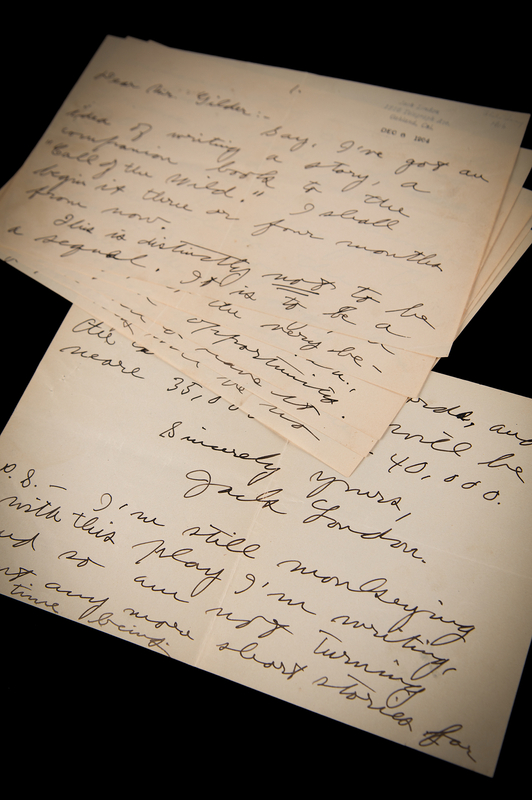 1.
DEC 6 1904
Dear Mr. Gilder:-
Say, I've got an
idea of writing a story, a
companion book to the
"Call of the Wild." I shall
begin it three or four months
from now.
This is distinctly not to be
a sequel. It is to be a
the very be-
opportunity.
have to
no
words, and
will be
35,0 40,000.
Sincerely yours,
Jack London.
P.S.- I'm still monkeying
with this play I'm writing,
and so am not turning
out any more short stories for
time being.